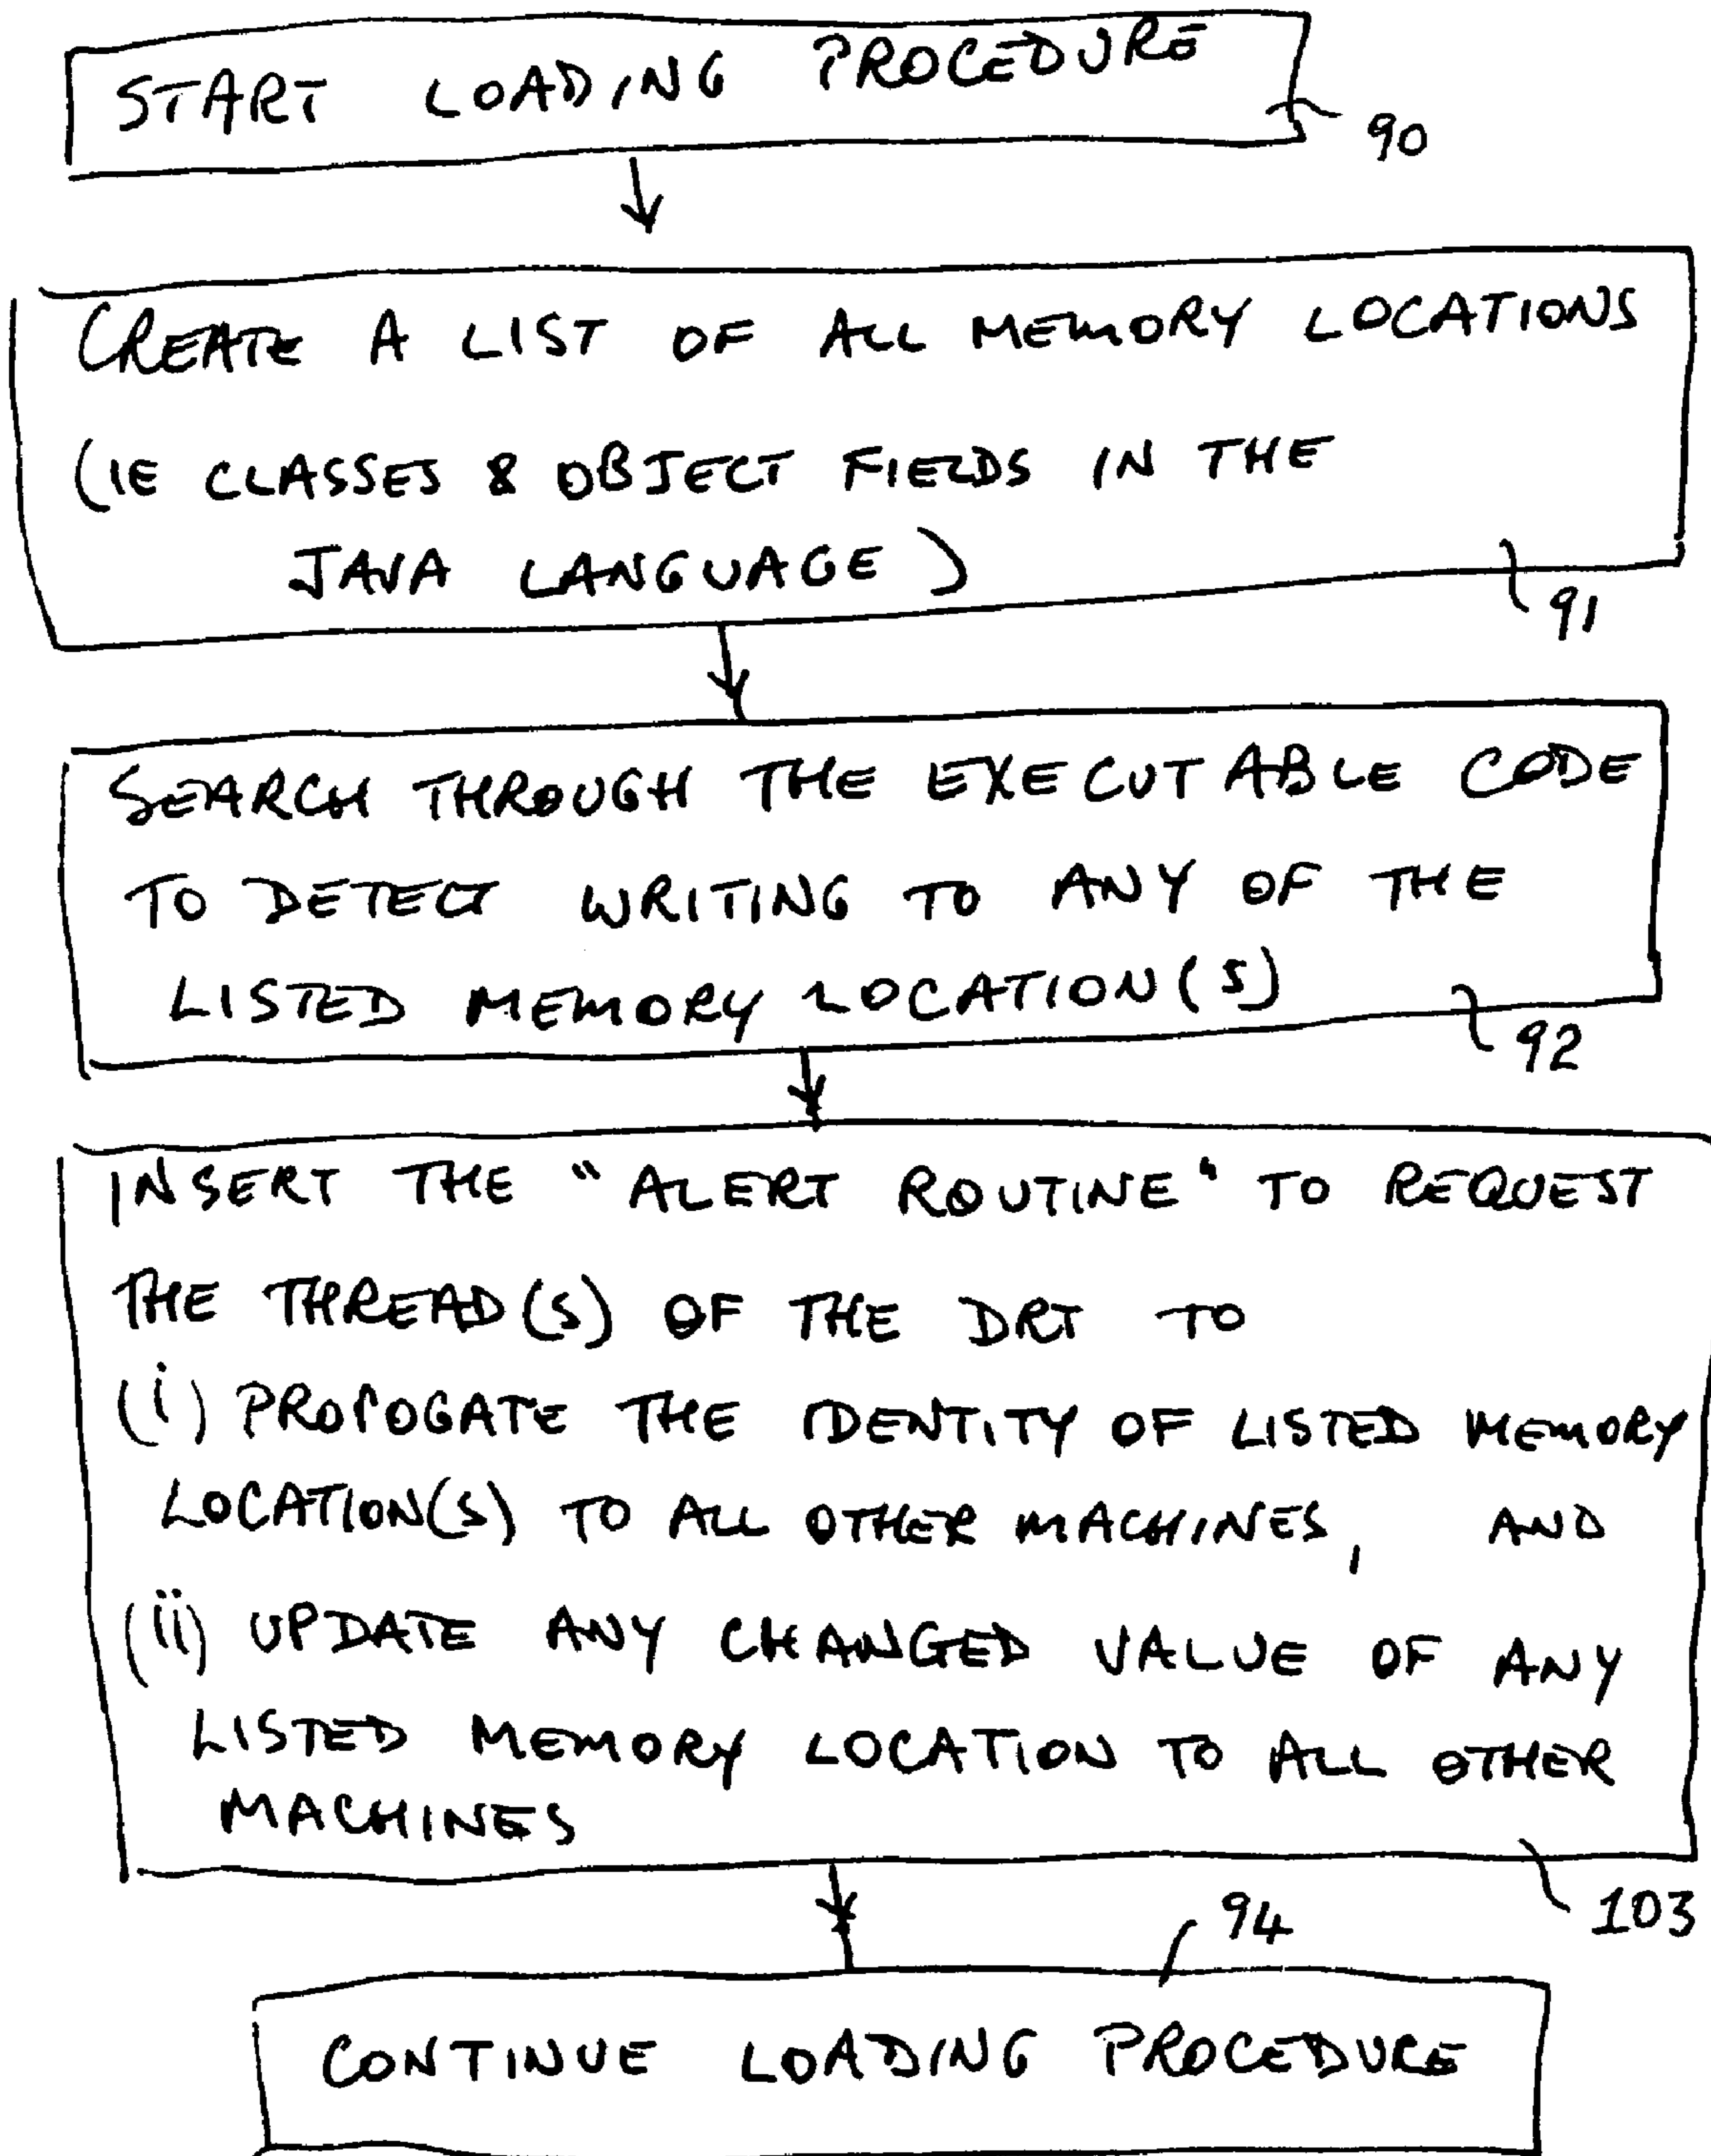 START LOADING PROCEDURE
90
CREATE A LIST OF ALL MEMORY LOCATIONS
(IE CLASSES & OBJECT FIELDS IN THE
JAVA LANGUAGE)
91
SEARCH THROUGH THE EXECUTABLE CODE
TO DETECT WRITING TO ANY OF THE
LISTED MEMORY LOCATION(S)
92
INSERT THE "ALERT ROUTINE" TO REQUEST
THE THREAD(S) OF THE DRT TO
(i) PROPOGATE THE IDENTITY OF LISTED MEMORY
LOCATION(S) TO ALL OTHER MACHINES, AND
(ii) UPDATE ANY CHANGED VALUE OF ANY
LISTED MEMORY LOCATION TO ALL OTHER
MACHINES
103
94
CONTINUE LOADING PROCEDURE